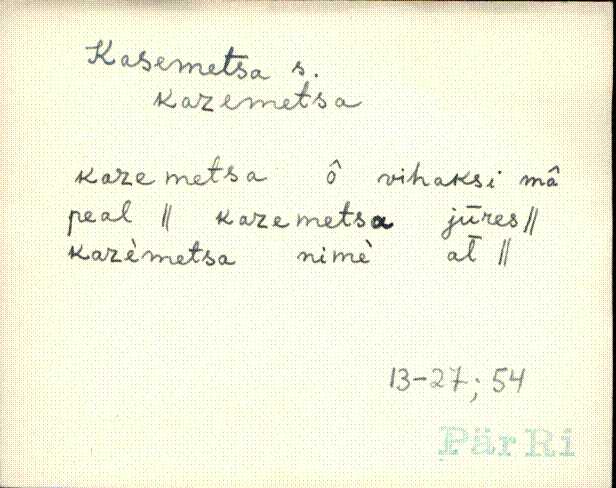 Kasemetsa s.
kazemetsa
kazemetsa ô vihaksi mâ
peal || kazemetsa jūres ||
kazèmetsa nimè at̄ ||
13-27; 54
PärRi